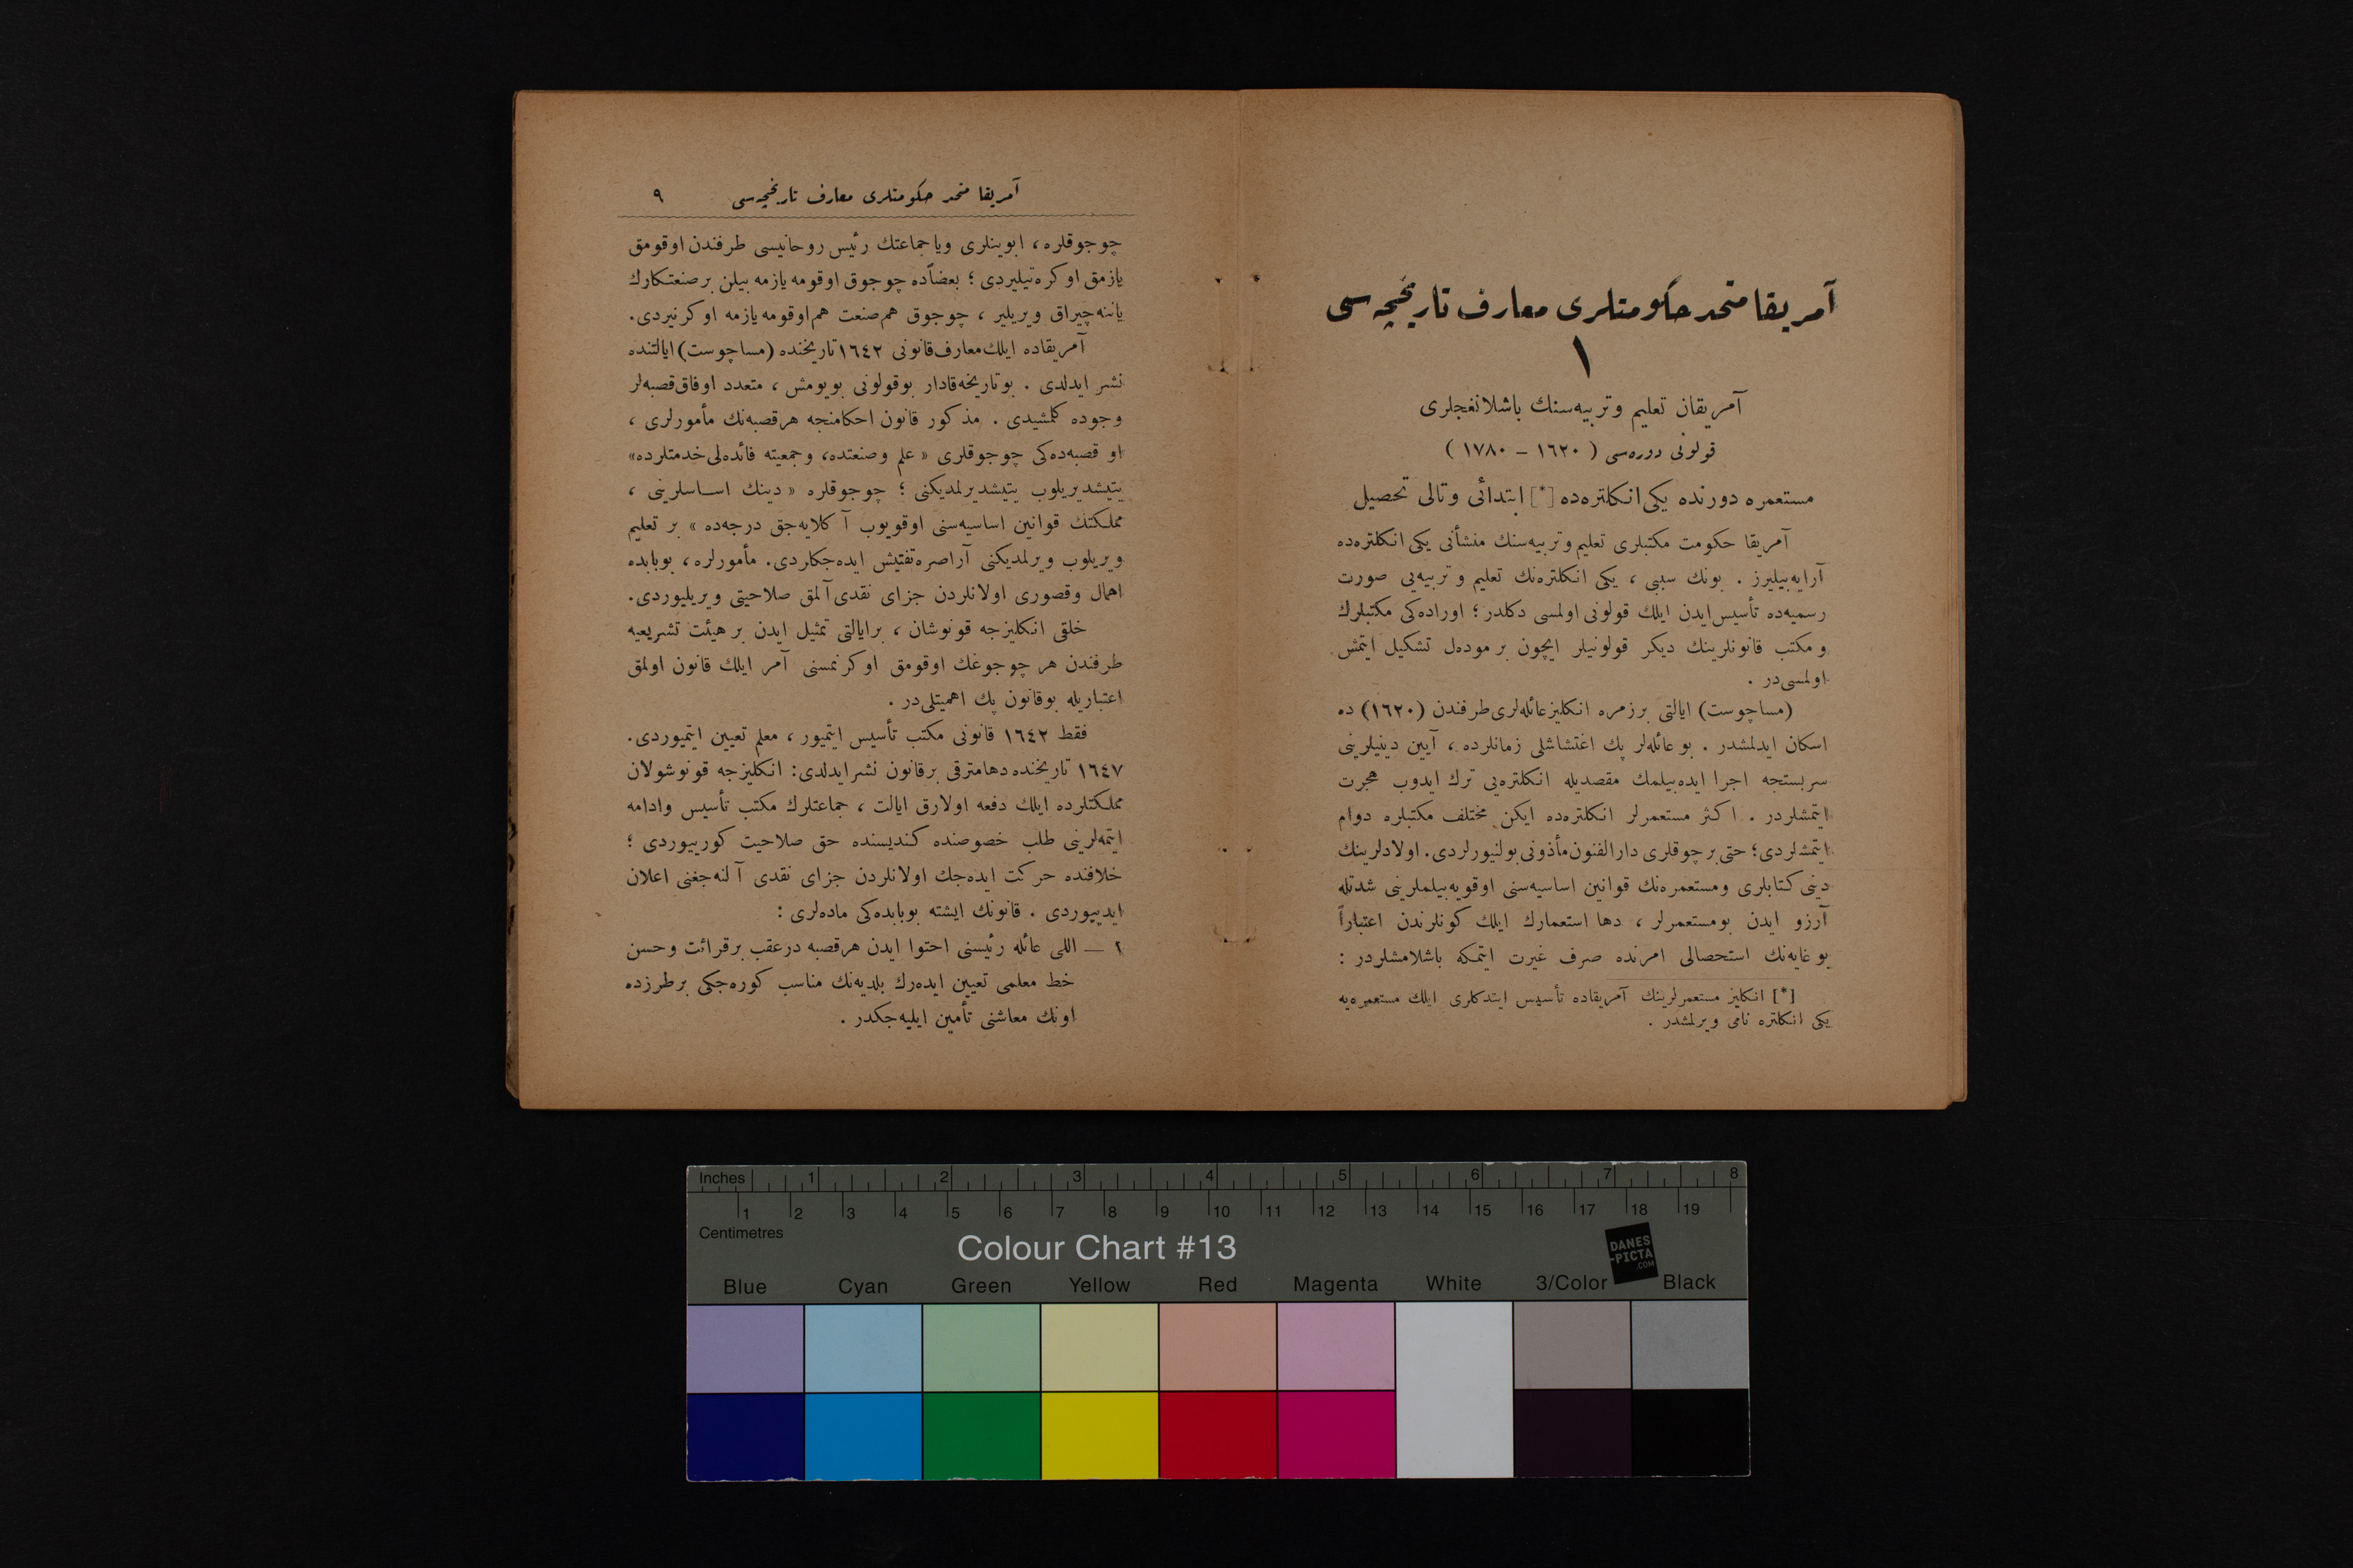 آمریقا متحد حکومتلری معارف تاریخچه‌سی
١
آمریقان تعلیم وتربیه‌سنك باشلانغجلری
قولونی دوره‌سی ( ١٦٢٠ – ١٧٨٠ )
مستعمره دورنده یکی انکلتره‌ده [*] ابتدائی وتالی تحصیل
آمریقا حکومت مکتبلری تعلیم وتربیه‌سنك منشأنی یکی انکلتره‌ده
آرایه‌بیلیرز . بونك سببی ، یکی انکلتره‌نك تعلیم وتربیه‌یی صورت
رسمیه‌ده تأسیس ایدن ایلك قولونی اولمسی دکلدر ؛ اوراده‌کی مکتبلرك
ومکتب قانونلرینك دیکر قولونیلر ایچون بر موده‌ل تشکیل ایتمش
اولمسی‌در .
(مساچوست) ایالتی برزمره انکلیزعائله‌لری طرفندن (١٦٢٠) ده
اسکان ایدلمشدر . بو عائله‌لر پك اغتشاشلی زمانلرده ، آیین دینیلرینی
سربستجه اجرا ایده‌بیلمك مقصدیله انکلتره‌یی ترك ایدوب هجرت
ایتمشلردر . اکثر مستعمرلر انکلتره‌ده ایکن مختلف مکتبلره دوام
ایتمشلردی ؛ حتی برچوقلری دارالفنون مأذونی بولنیورلردی. اولادلرینك
دینی کتابلری ومستعمره‌نك قوانین اساسیه‌سنی اوقویه‌بیلملرینی شدتله
آرزو ایدن بومستعمرلر ، دها استعمارك ایلك کونلرندن اعتباراً
بو غایه‌نك استحصالی امرنده صرف غیرت ایتمکه باشلامشلردر :
[*] انکلیز مستعمرلرینك آمریقاده تأسیس ایتدکلری ایلك مستعمره‌یه
یکی انکلتره نامی ویرلمشدر .
آمریقا متحد حکومتلری معارف تاریخچه‌سی ٩
چوجوقلره ، ابوینلری ویاجماعتك رئیس روحانیسی طرفندن اوقومق
یازمق اوکره‌تیلیردی ؛ بعضاًده چوجوق اوقومه یازمه بیلن برصنعتکارك
یاننه چیراق ویریلیر ، چوجوق هم‌صنعت هم‌اوقومه یازمه اوکرنیردی.
آمریقاده ایلك معارف قانونی ١٦٤٢ تاریخنده (مساچوست) ایالتنده
نشر ایدلدی . بوتاریخه‌قادار بوقولونی بویومش ، متعدد اوفاق قصبه‌لر
وجوده کلمشیدی . مذکور قانون احکامنجه هرقصبه‌نك مأمورلری ،
او قصبه‌ده‌کی چوجوقلری « علم وصنعتده، وجمعیته فائده‌لی‌خدمتلرده»
یتیشدیریلوب یتیشدیرلمدیکنی ؛ چوجوقلره « دینك اساسلرینی ،
مملکتك قوانین اساسیه‌سنی اوقویوب آکلایه‌جق درجه‌ده » بر تعلیم
ویریلوب ویرلمدیکنی آراصره تفتیش ایده‌جکلردی. مأمورلره، بوبابده
اهمال وقصوری اولانلردن جزای نقدی آلمق صلاحیتی ویریلیوردی.
خلقی انکلیزجه قونوشان ، برایالتی تمثیل ایدن بر هیئت تشریعیه
طرفندن هر چوجوغك اوقومق اوکرنمسنی آمر ایلك قانون اولمق
اعتباریله بوقانون پك اهمیتلی‌در .
فقط ١٦٤٢ قانونی مکتب تأسیس ایتمیور ، معلم تعیین ایتمیوردی.
١٦٤٧ تاریخنده دهامترقی برقانون نشر ایدلدی: انکلیزجه قونوشولان
مملکتلرده ایلك دفعه اولارق ایالت ، جماعتلرك مکتب تأسیس وادامه
ایتمه‌لرینی طلب خصوصنده کندیسنده حق صلاحیت کورییوردی ؛
خلافنده حرکت ایده‌جك اولانلردن جزای نقدی آلنه‌جغنی اعلان
ایدییوردی . قانونك ایشته بوبابده‌کی ماده‌لری :
١ — اللی عائله رئیسنی احتوا ایدن هرقصبه درعقب برقرائت وحسن
خط معلمی تعیین ایده‌رك بلدیه‌نك مناسب کوره‌جکی برطرزده
اونك معاشنی تأمین ایلیه‌جکدر .
Inches 1 2 3 4 5 6 7 8
1 2 3 4 5 6 7 8 9 10 11 12 13 14 15 16 17 18 19
Centimetres
Colour Chart #13
DANES
-PICTA
.COM
Blue Cyan Green Yellow Red Magenta White 3/Color Black